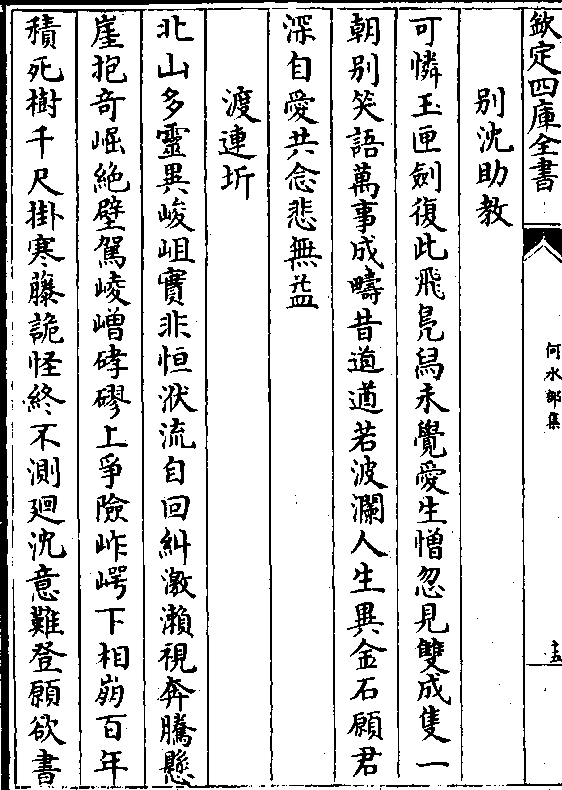 欽定四庫全書
何水部集
十五
別沈助教
可憐玉匣劍復此飛鳧舄未覺愛生憎忽見雙成隻一
朝別笑語萬事成疇昔道遒若波瀾人生異金石願君
深自愛共念悲無益
渡連圻
北山多靈異峻岨實非恒洑流自回糾激瀨視奔騰懸
崖抱奇崛絶壁駕崚嶒硣磟上爭險岞崿下相崩百年
積死樹千尺掛寒藤詭怪終不測廻沈意難登願欲書